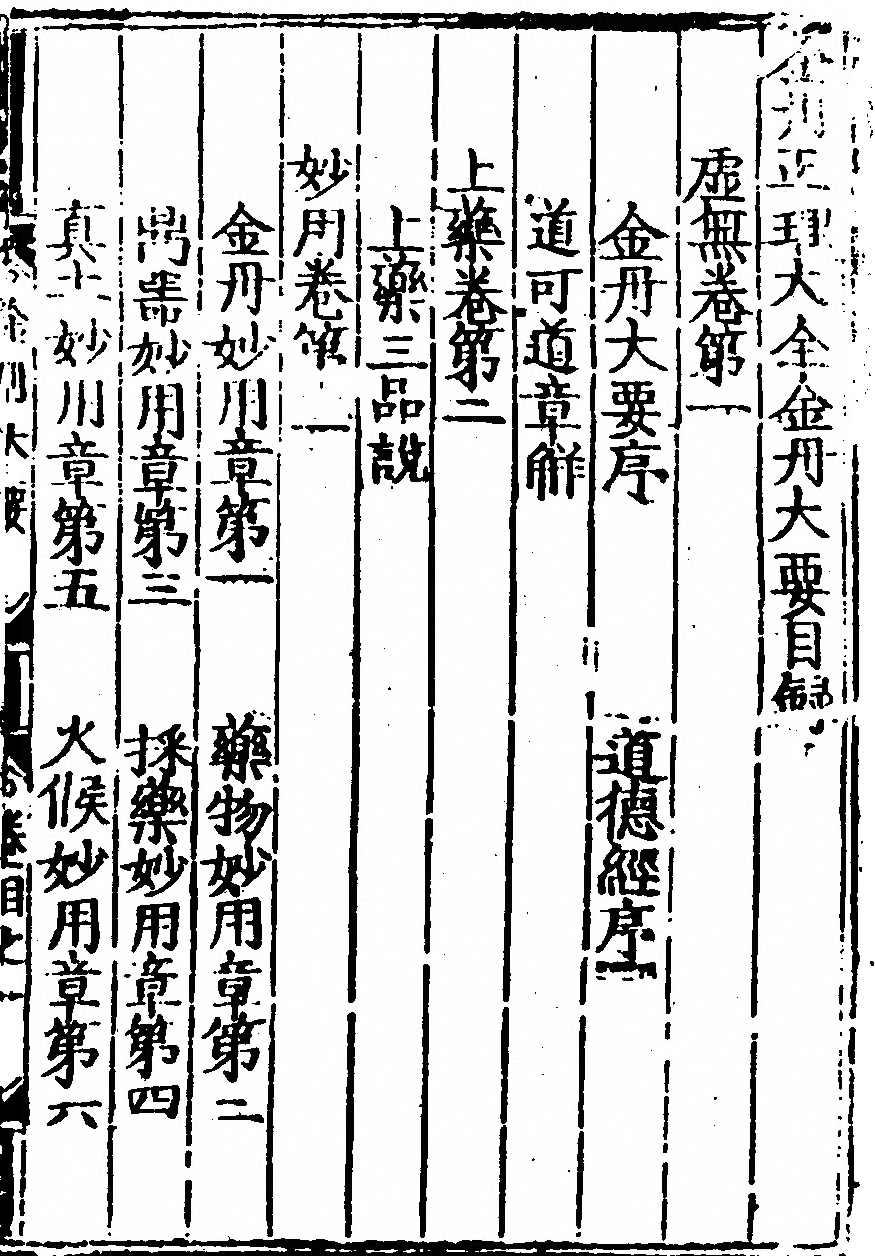 金丹正理大全金丹大要目錄
虛無卷第一
金丹大要序　道德經序
道可道章解
上藥卷第二
上藥三品說
妙用卷第
金丹妙用章第一　藥物妙用章第二
鼎器妙用章第三　採藥妙用章第四
真土妙用章第五　火候妙用章第六